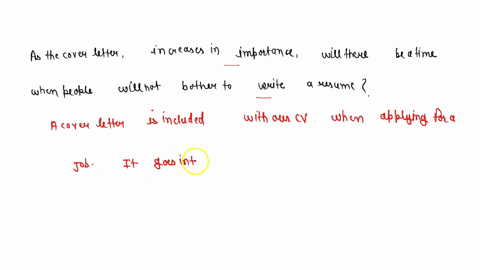 As the cover letter, increases in importance, will there be a time
when people will not bother to write a resume?
A cover letter is included with our CV when applying for a
Job. It goes int